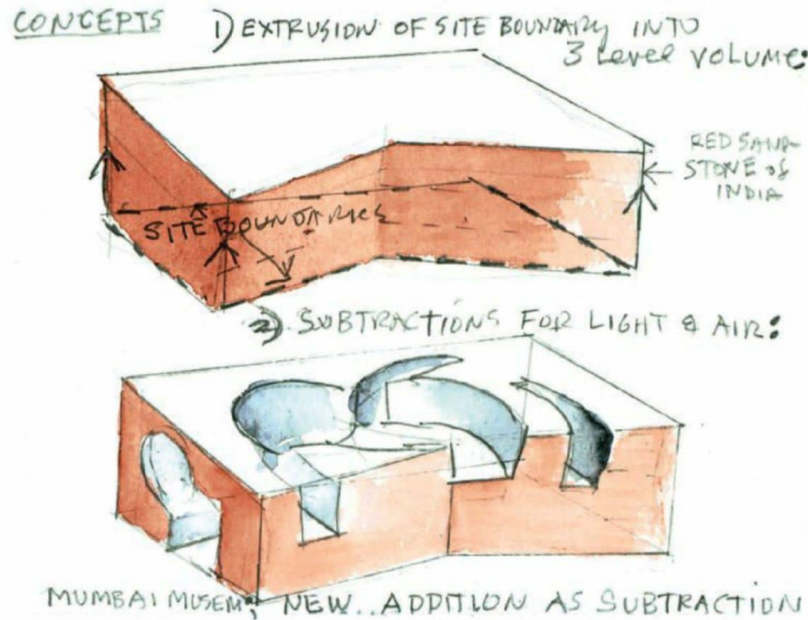 CONCEPTS
1) EXTRUSION OF SITE BOUNDARY INTO
3 Level VOLUME:
RED SAND-
STONE of
INDIA
SITE BOUNDARIES
2) SUBTRACTIONS FOR LIGHT & AIR:
MUMBAI MUSEM; NEW.. ADDITION AS SUBTRACTION